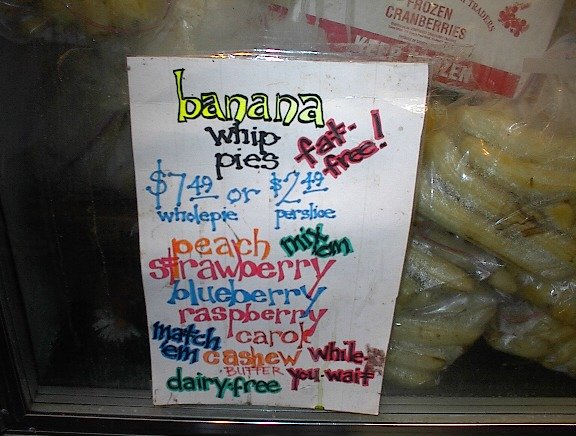 FROZEN
CRANBERRIES
TRADERS
KEEP FROZEN
banana
whip
pies
fat-
free!
$7.49 or $2.49
wholepie perslice
peach mix em
strawberry
blueberry
raspberry
match em carob
cashew while-
BUTTER
dairy-free you-wait